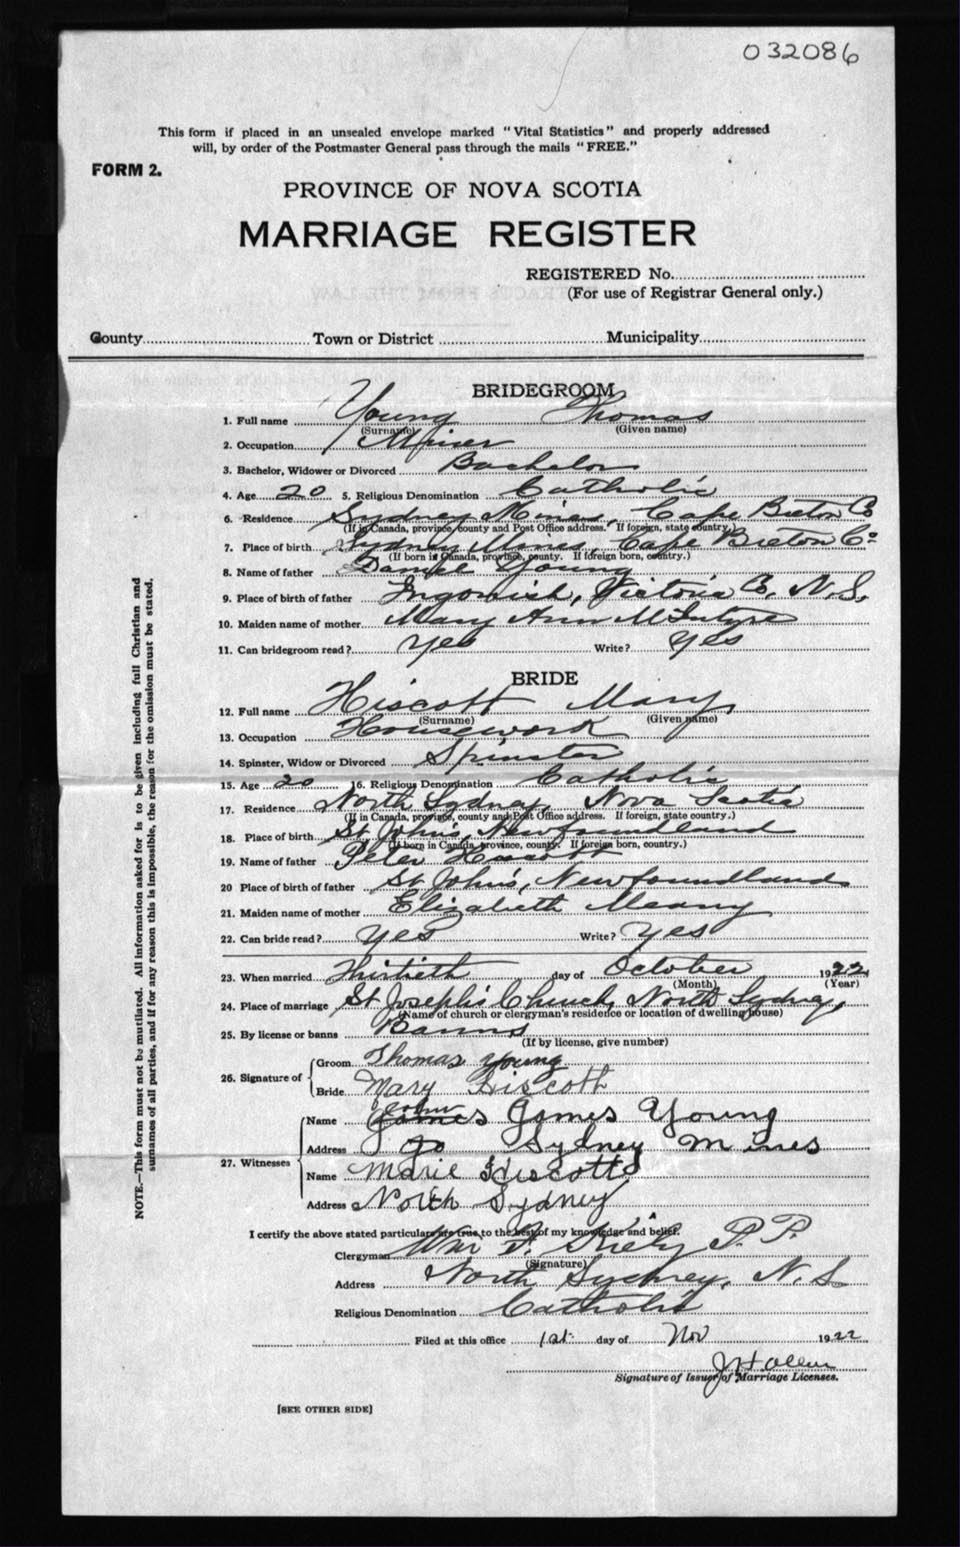 032086
This form if placed in an unsealed envelope marked "Vital Statistics" and properly addressed
will, by order of the Postmaster General pass through the mails "FREE."
FORM 2.
PROVINCE OF NOVA SCOTIA
MARRIAGE REGISTER
REGISTERED No.
(For use of Registrar General only.)
County Town or District Municipality
BRIDEGROOM
1. Full name Young Thomas
(Surname) (Given name)
2. Occupation Miner
3. Bachelor, Widower or Divorced Bachelor
4. Age 20 5. Religious Denomination Catholic
6. Residence Sydney Mines, Cape Breton Co
(If in Canada, province, county and Post Office address. If foreign, state country.)
7. Place of birth Sydney Mines, Cape Breton Co.
(If born in Canada, province, county. If foreign born, country.)
8. Name of father Daniel Young
9. Place of birth of father Ingonish, Victoria Co, N.S.
10. Maiden name of mother Mary Ann McIntyre
11. Can bridegroom read? Yes Write? Yes
BRIDE
12. Full name Hiscott Mary
(Surname) (Given name)
13. Occupation Housework
14. Spinster, Widow or Divorced Spinster
15. Age 20 16. Religious Denomination Catholic
17. Residence North Sydney, Nova Scotia
(If in Canada, province, county and Post Office address. If foreign, state country.)
18. Place of birth St John's, Newfoundland
(If born in Canada, province, county. If foreign born, country.)
19. Name of father Peter Hiscott
20 Place of birth of father St John's, Newfoundland
21. Maiden name of mother Elizabeth Meany
22. Can bride read? Yes Write? Yes
23. When married Thirtieth day of October 1922
(Month) (Year)
24. Place of marriage St Joseph's Church, North Sydney,
(Name of church or clergyman's residence or location of dwelling house)
25. By license or banns Banns
(If by license, give number)
26. Signature of Groom Thomas Young
Bride Mary Hiscott
27. Witnesses Name John James James Young
Address Sydney Mines
Name Marie Hiscott
Address North Sydney
I certify the above stated particulars are true to the best of my knowledge and belief.
Clergyman Wm F. Kiely P.P.
(Signature)
Address North Sydney, N.S.
Religious Denomination Catholic
Filed at this office 1st day of Nov 1922
Signature of Issuer of Marriage Licenses.
[SEE OTHER SIDE]
NOTE.—This form must not be mutilated. All information asked for is to be given including full Christian and
surnames of all parties, and if for any reason this is impossible, the reason for the omission must be stated.